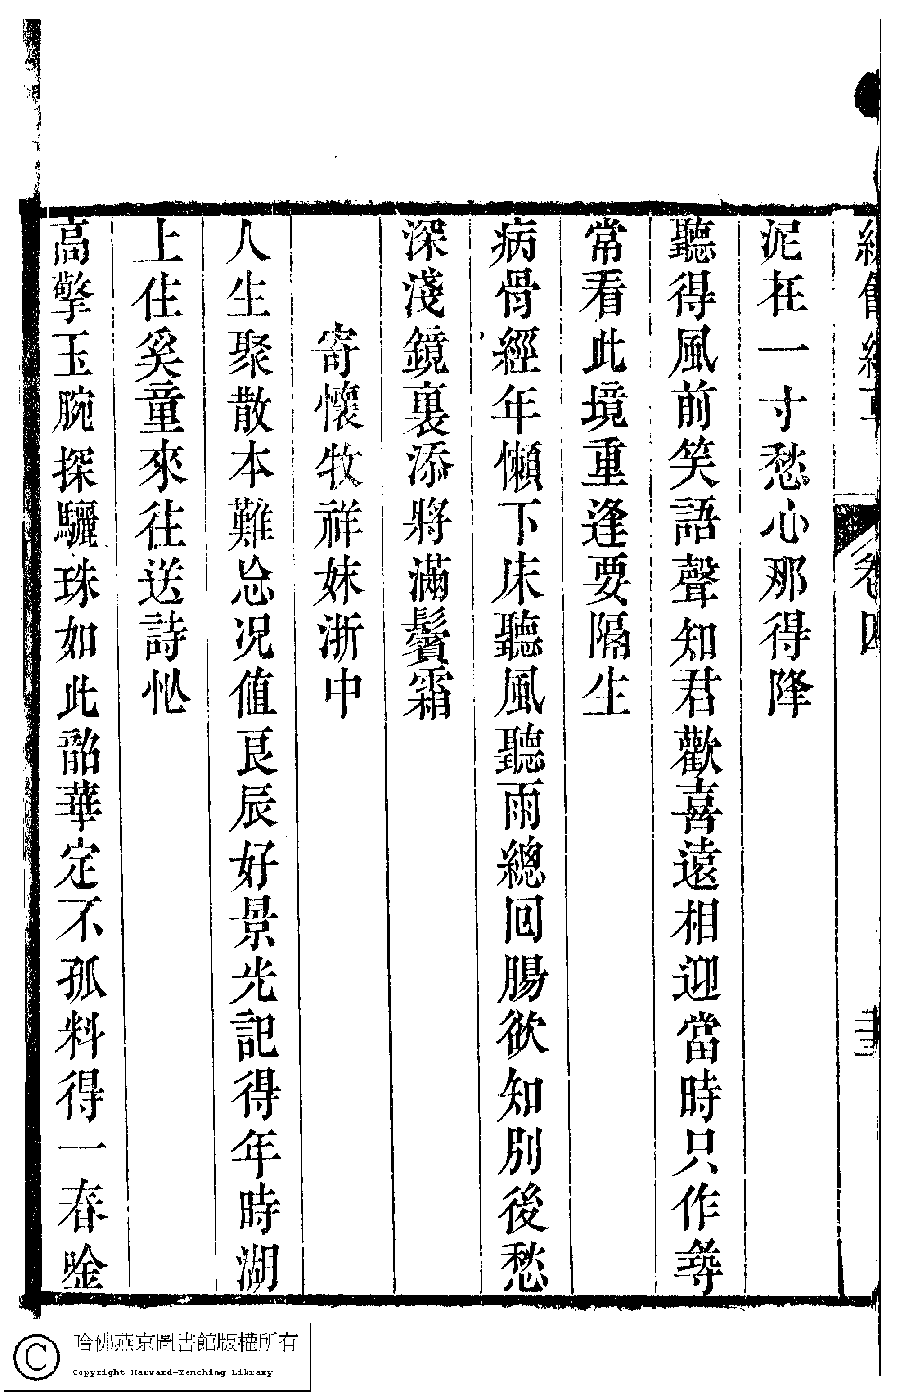 泥在一寸愁心那得降
聽得風前笑語聲知君歡喜遠相迎當時只作尋
常看此境重逢要隔生
病骨經年懶下床聽風聽雨總回腸欲知別後愁
深淺鏡裏添將滿鬢霜
寄懷牧祥妹浙中
人生聚散本難忩况值良辰好景光記得年時湖
上住奚童來往送詩忙
高擎玉腕探驪珠如此韶華定不孤料得一春唫
卷四
哈佛燕京圖書館版權所有
Copyright Harvard-Yenching Library